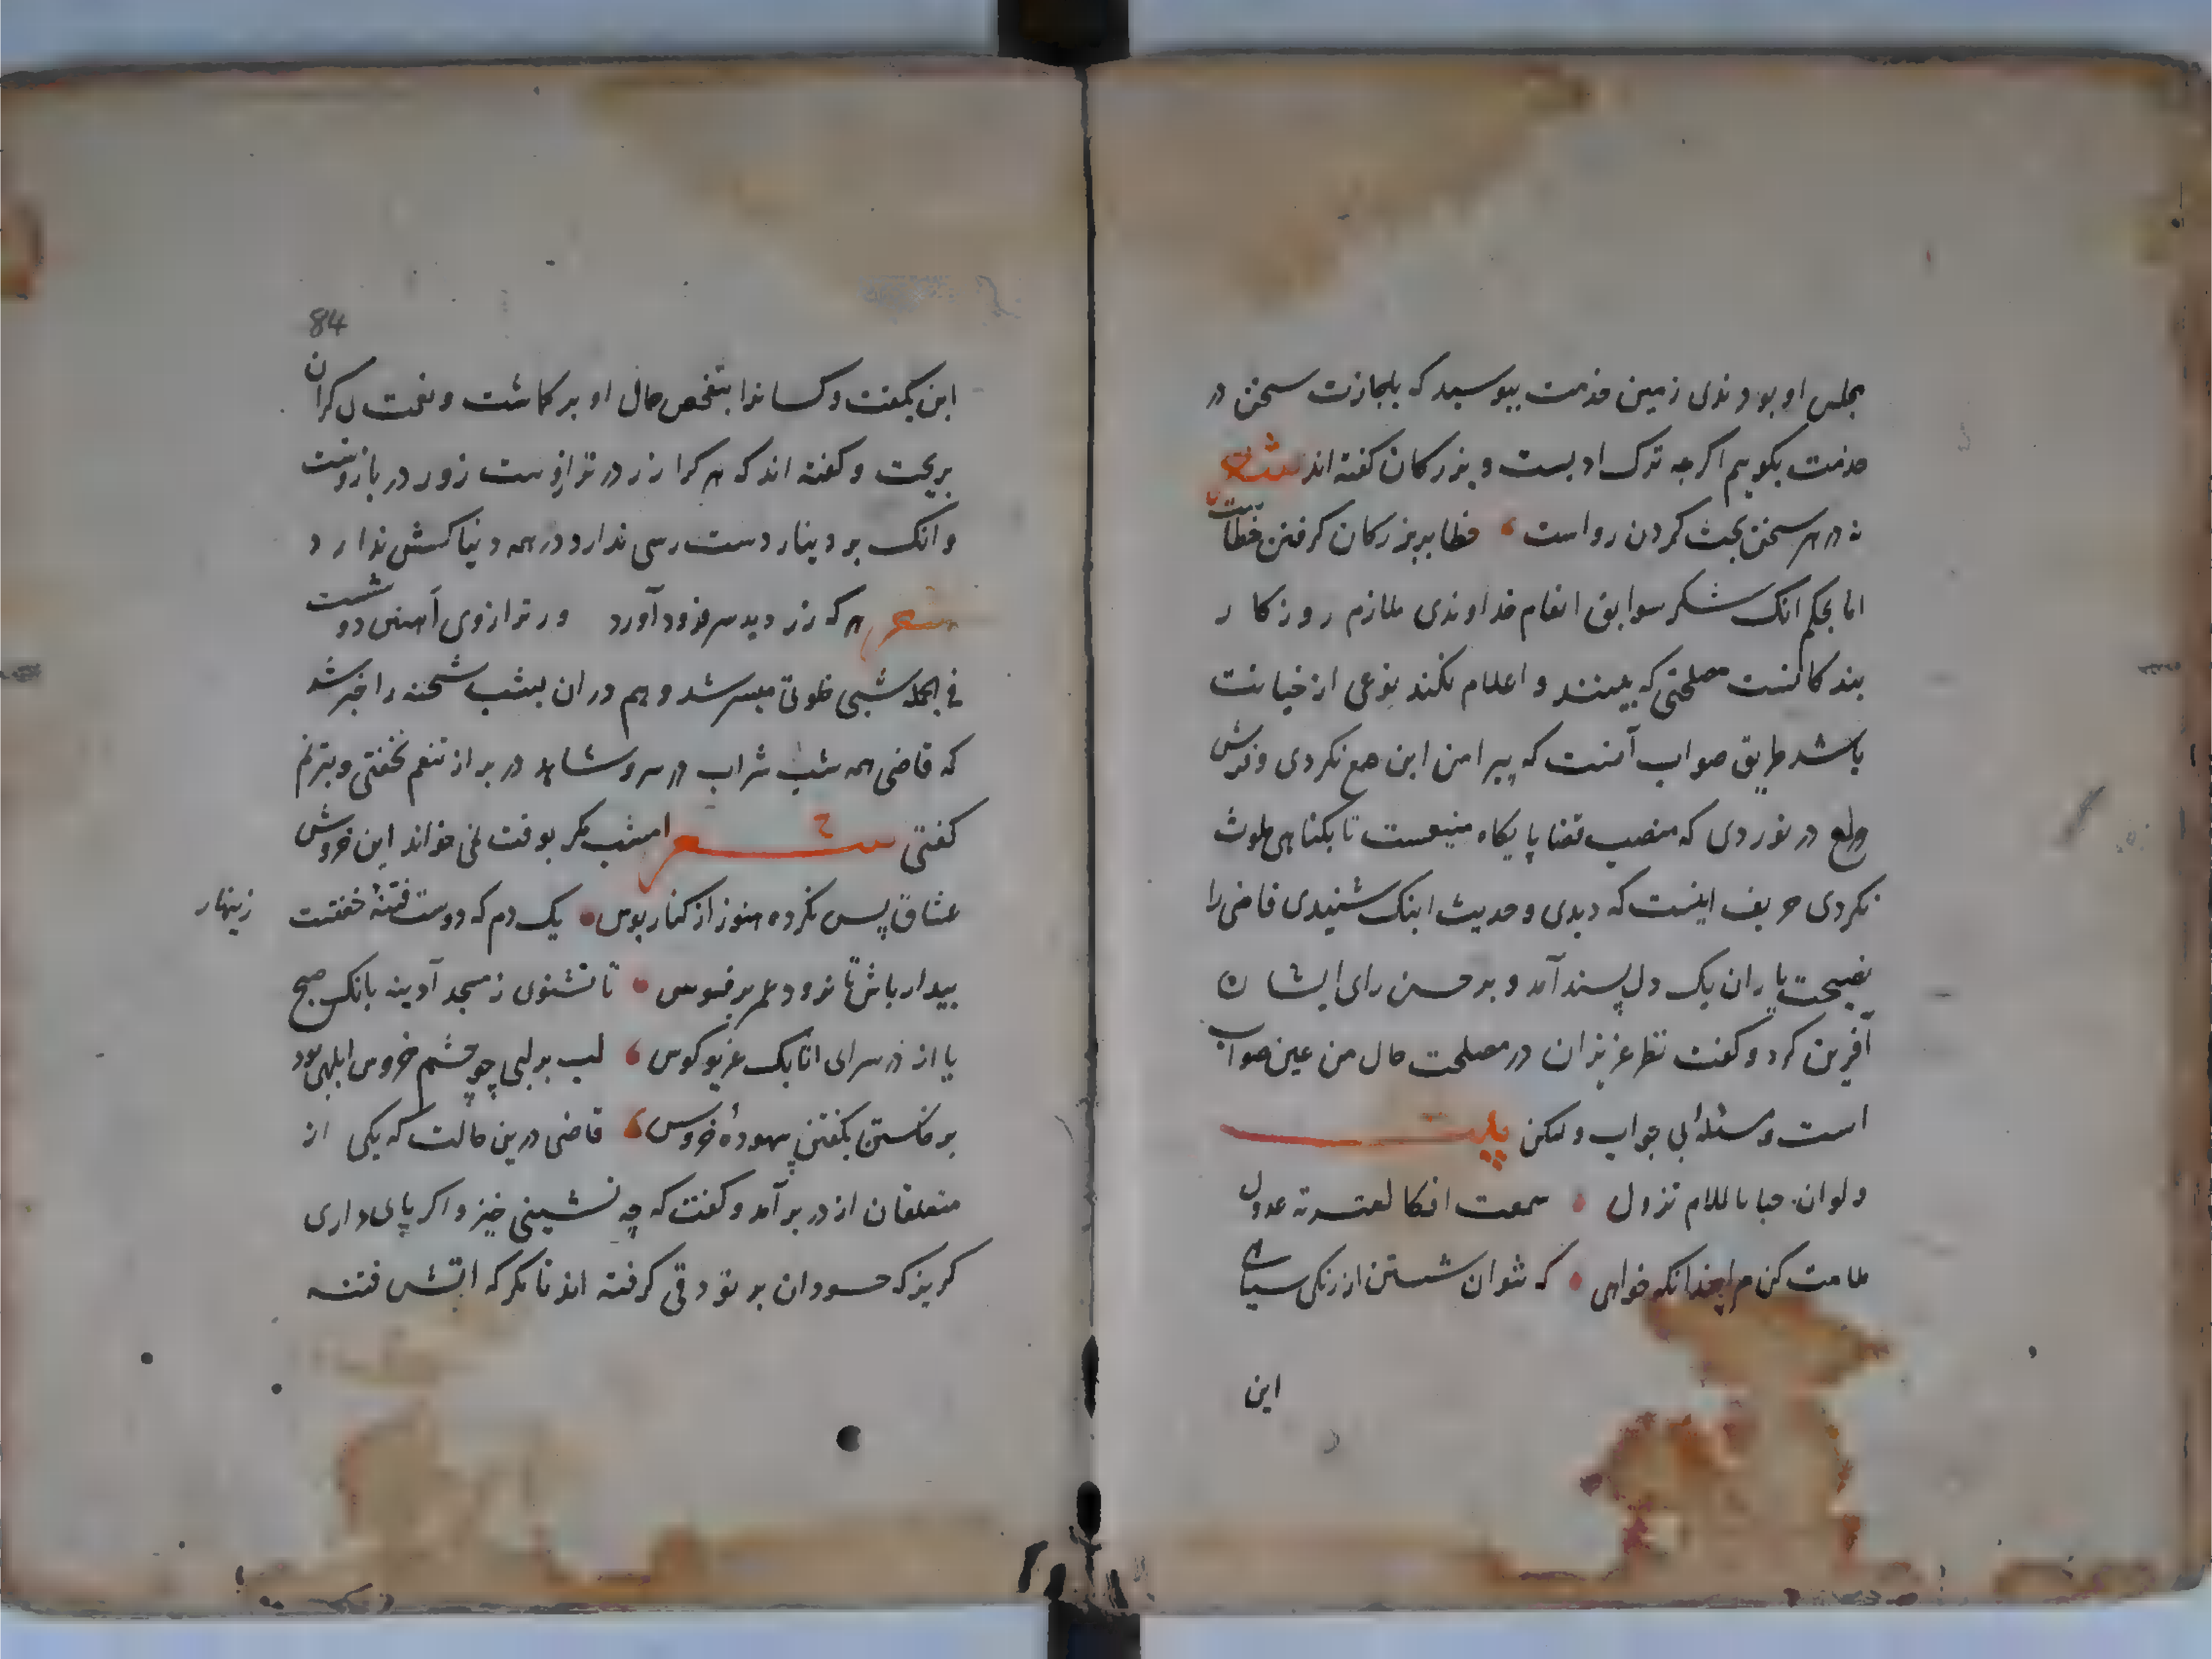 مجلس او بودندی زمین خدمت ببوسید که باجازت سخن در
خدمت بکویم اکرچه ترک ادبست و بزرکان کفته اند شعر
نه در هر سخن بحث کردن رواست خطا بر بزرکان کرفتن خطاست
اما بحکم انک شکر سوابق انعام خداوندی ملازم روزکار
بندکانست مصلحتی که ببینند و اعلام نکنند نوعی از خیانت
باشد طریق صواب آنست که پیرامن این طمع نکردی و فرش
ولع در نوردی که منصب قضا پایکاه منیعست تا بکناهی ملوث
نکردی حریف اینست که دیدی و حدیث اینک شنیدی قاضی را
نصیحت یاران یک دل پسند آمد و بر حسن رای ایشان
آفرین کرد و کفت نظر عزیزان در مصلحت حال من عین صواب
است و مسئله بی جواب ولکن بیت
ولو ان حبا بالملام تزول سمعت افکا عدول
ملامت کن مرا چندانکه خواهی که نتوان شستن از زنکی سیاهی
این
84
این بکفت و کسانرا بتفحص حال او بر کماشت و نعمت بی کران
بریخت و کفته اند که هر کرا زر در ترازوست زور در بازوست
و انک بر دینار دست رسی ندارد در همه دنیا کس ندارد
شعر هر که زر دید سر فرود آورد ور ترازوی آهنین دوشست
فی الجمله شبی خلوتی میسر شد و هم در ان شب شحنه را خبر شد
که قاضی همه شب شراب در سر و شاهد در بر از تنعم نخفتی و بترنم
کفتی شعر امشب مکر بوقت نمی خواند این خروس
عشاق پس نکرده هنوز از کنار بوس یک دم که دوست فتنهٔ خفتست زینهار
بیدار باش تا نرود عمر بر فسوس تا نشنوی ز مسجد آدینه بانک صبح
یا از در سرای اتابک غریو کوس لب بر لبی چو چشم خروس ابلهی بود
برخاستن بکفتن بیهودهٔ خروس قاضی درین حالت که یکی از
متعلقان از در بر آمد و کفت که چه نشینی خیز و اکر پای داری
کریز که حسودان بر تو دقی کرفته اند تا مکر که آتش فتنه